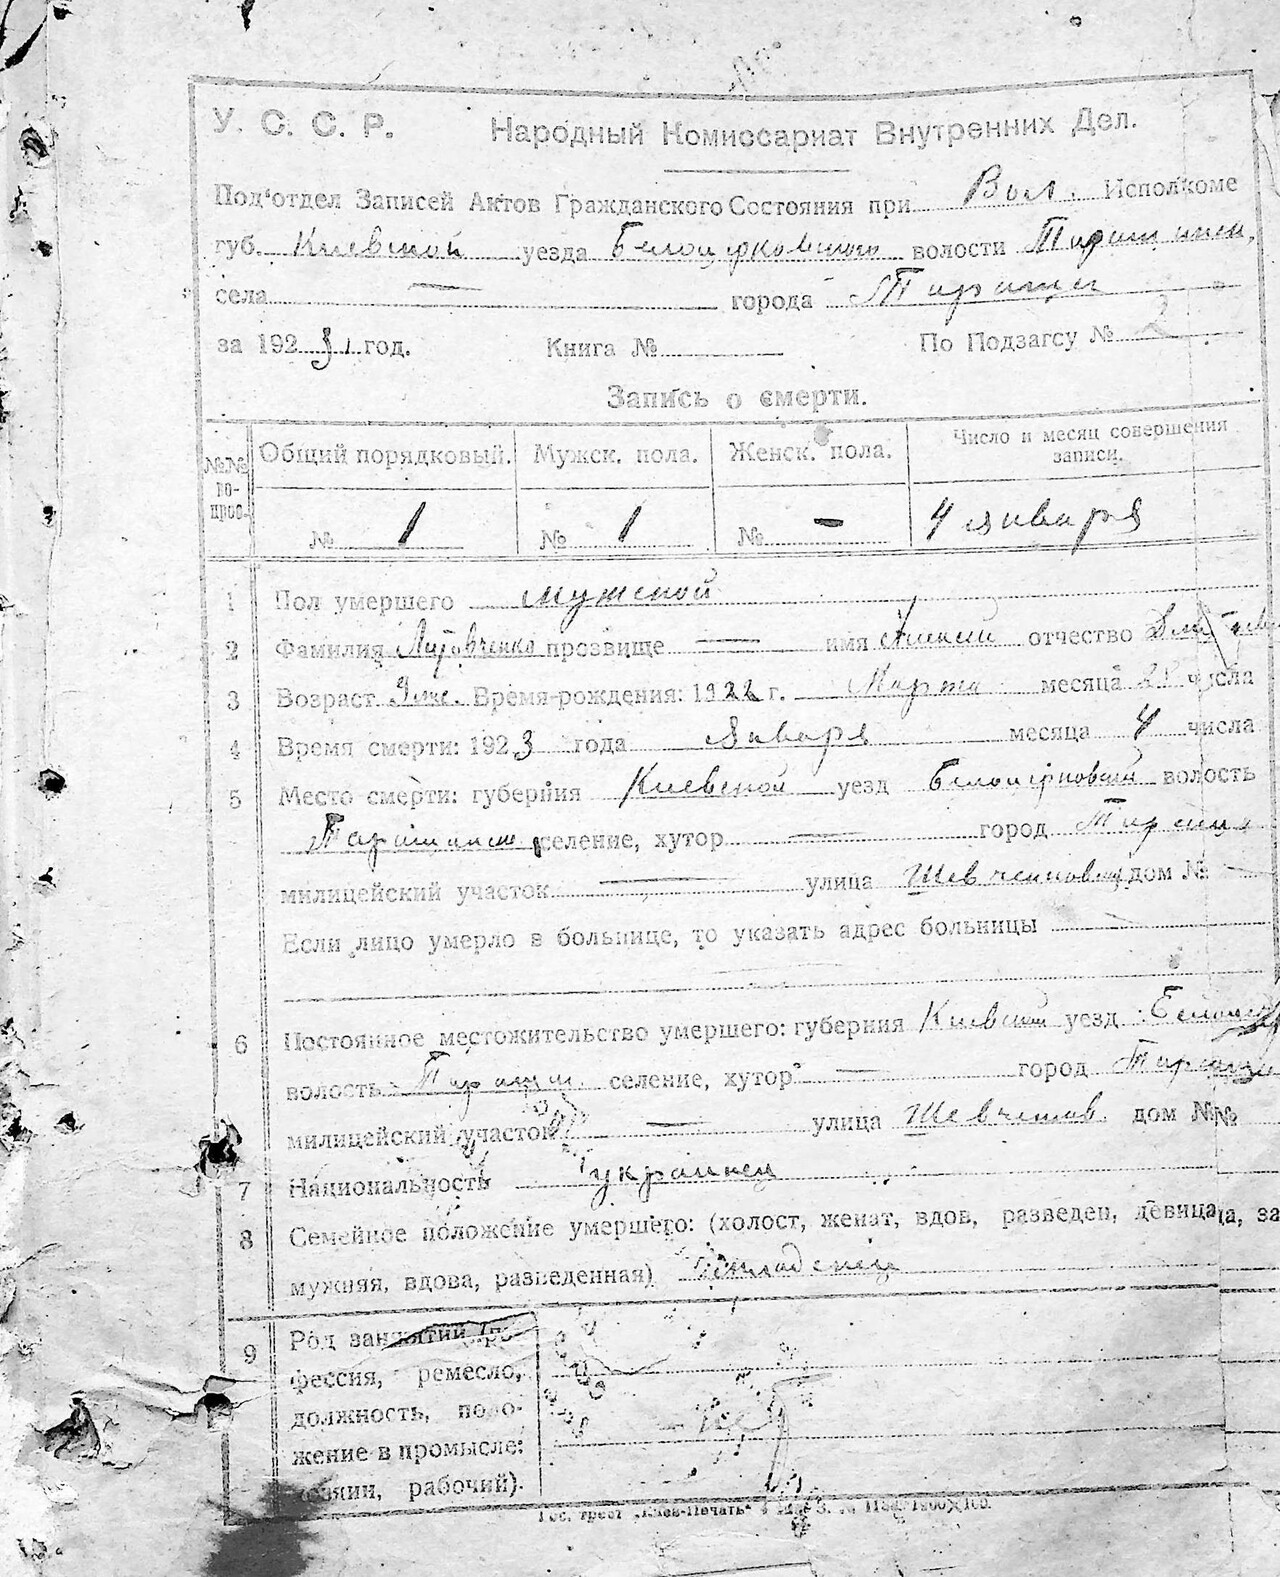 У. С. С. Р. Народный Комиссариат Внутренних Дел.
Под'отдел Записей Актов Гражданского Состояния при Вол. Исполкоме
губ. Киевской уезда Белоцерковского волости
села — города Таращи
за 1923 год. Книга № По Подзагсу № 2
Запись о смерти.
№№ по- прос. Общий порядковый. Мужск. пола. Женск. пола. Число и месяц совершения записи.
№ 1 № 1 № - 4 января
1 Пол умершего мужской
2 Фамилия Литовченко прозвище — имя Алексей отчество
3 Возраст 9 мес. Время рождения: 1922 г. Марта месяца числа
4 Время смерти: 1923 года Января месяца 4 числа
5 Место смерти: губерния Киевской уезд Белоцерковский волость
селение, хутор — город Тараща
милицейский участок — улица дом № —
Если лицо умерло в больнице, то указать адрес больницы —
6 Постоянное местожительство умершего: губерния Киевской уезд
волость селение, хутор — город Тараща
милицейский участок — улица Шевченков. дом №№
7 Национальность украинец
8 Семейное положение умершего: (холост, женат, вдов, разведен, девица, за
мужняя, вдова, разведенная) младенец
9 Род занятий (про-
фессия, ремесло,
должность, поло-
жение в промысле:
хозяин, рабочий).
Гос. трест „Киев-Печать“